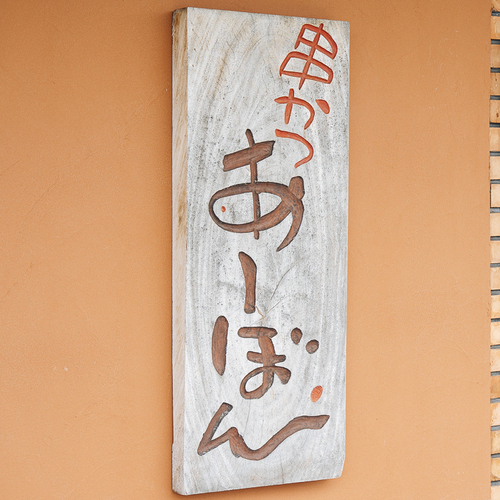 串かつ
あーぼん